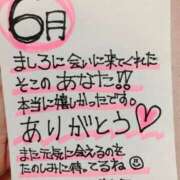 6月
ましろに会いに来てくれた
そこのあなた!!
本当に嬉しかったです。
ありがとう♡
また元気に会えるのを
たのしみに待ってるね